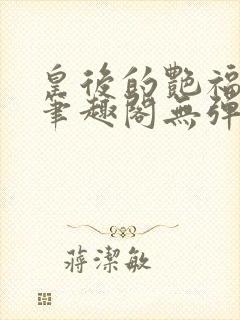 皇後的艷福
筆趣閣無彈
蔣潔敏